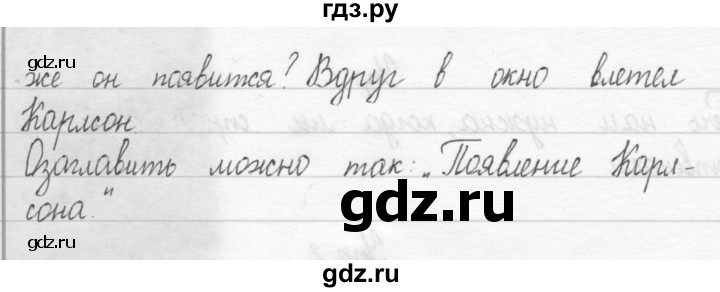 гдз.ру
gdz.ru
же он появится? Вдруг в окно влетел
Карлсон.
Озаглавить можно так: „Появление Карл-
сона."
gdz.ru
gdz.ru
gdz.ru